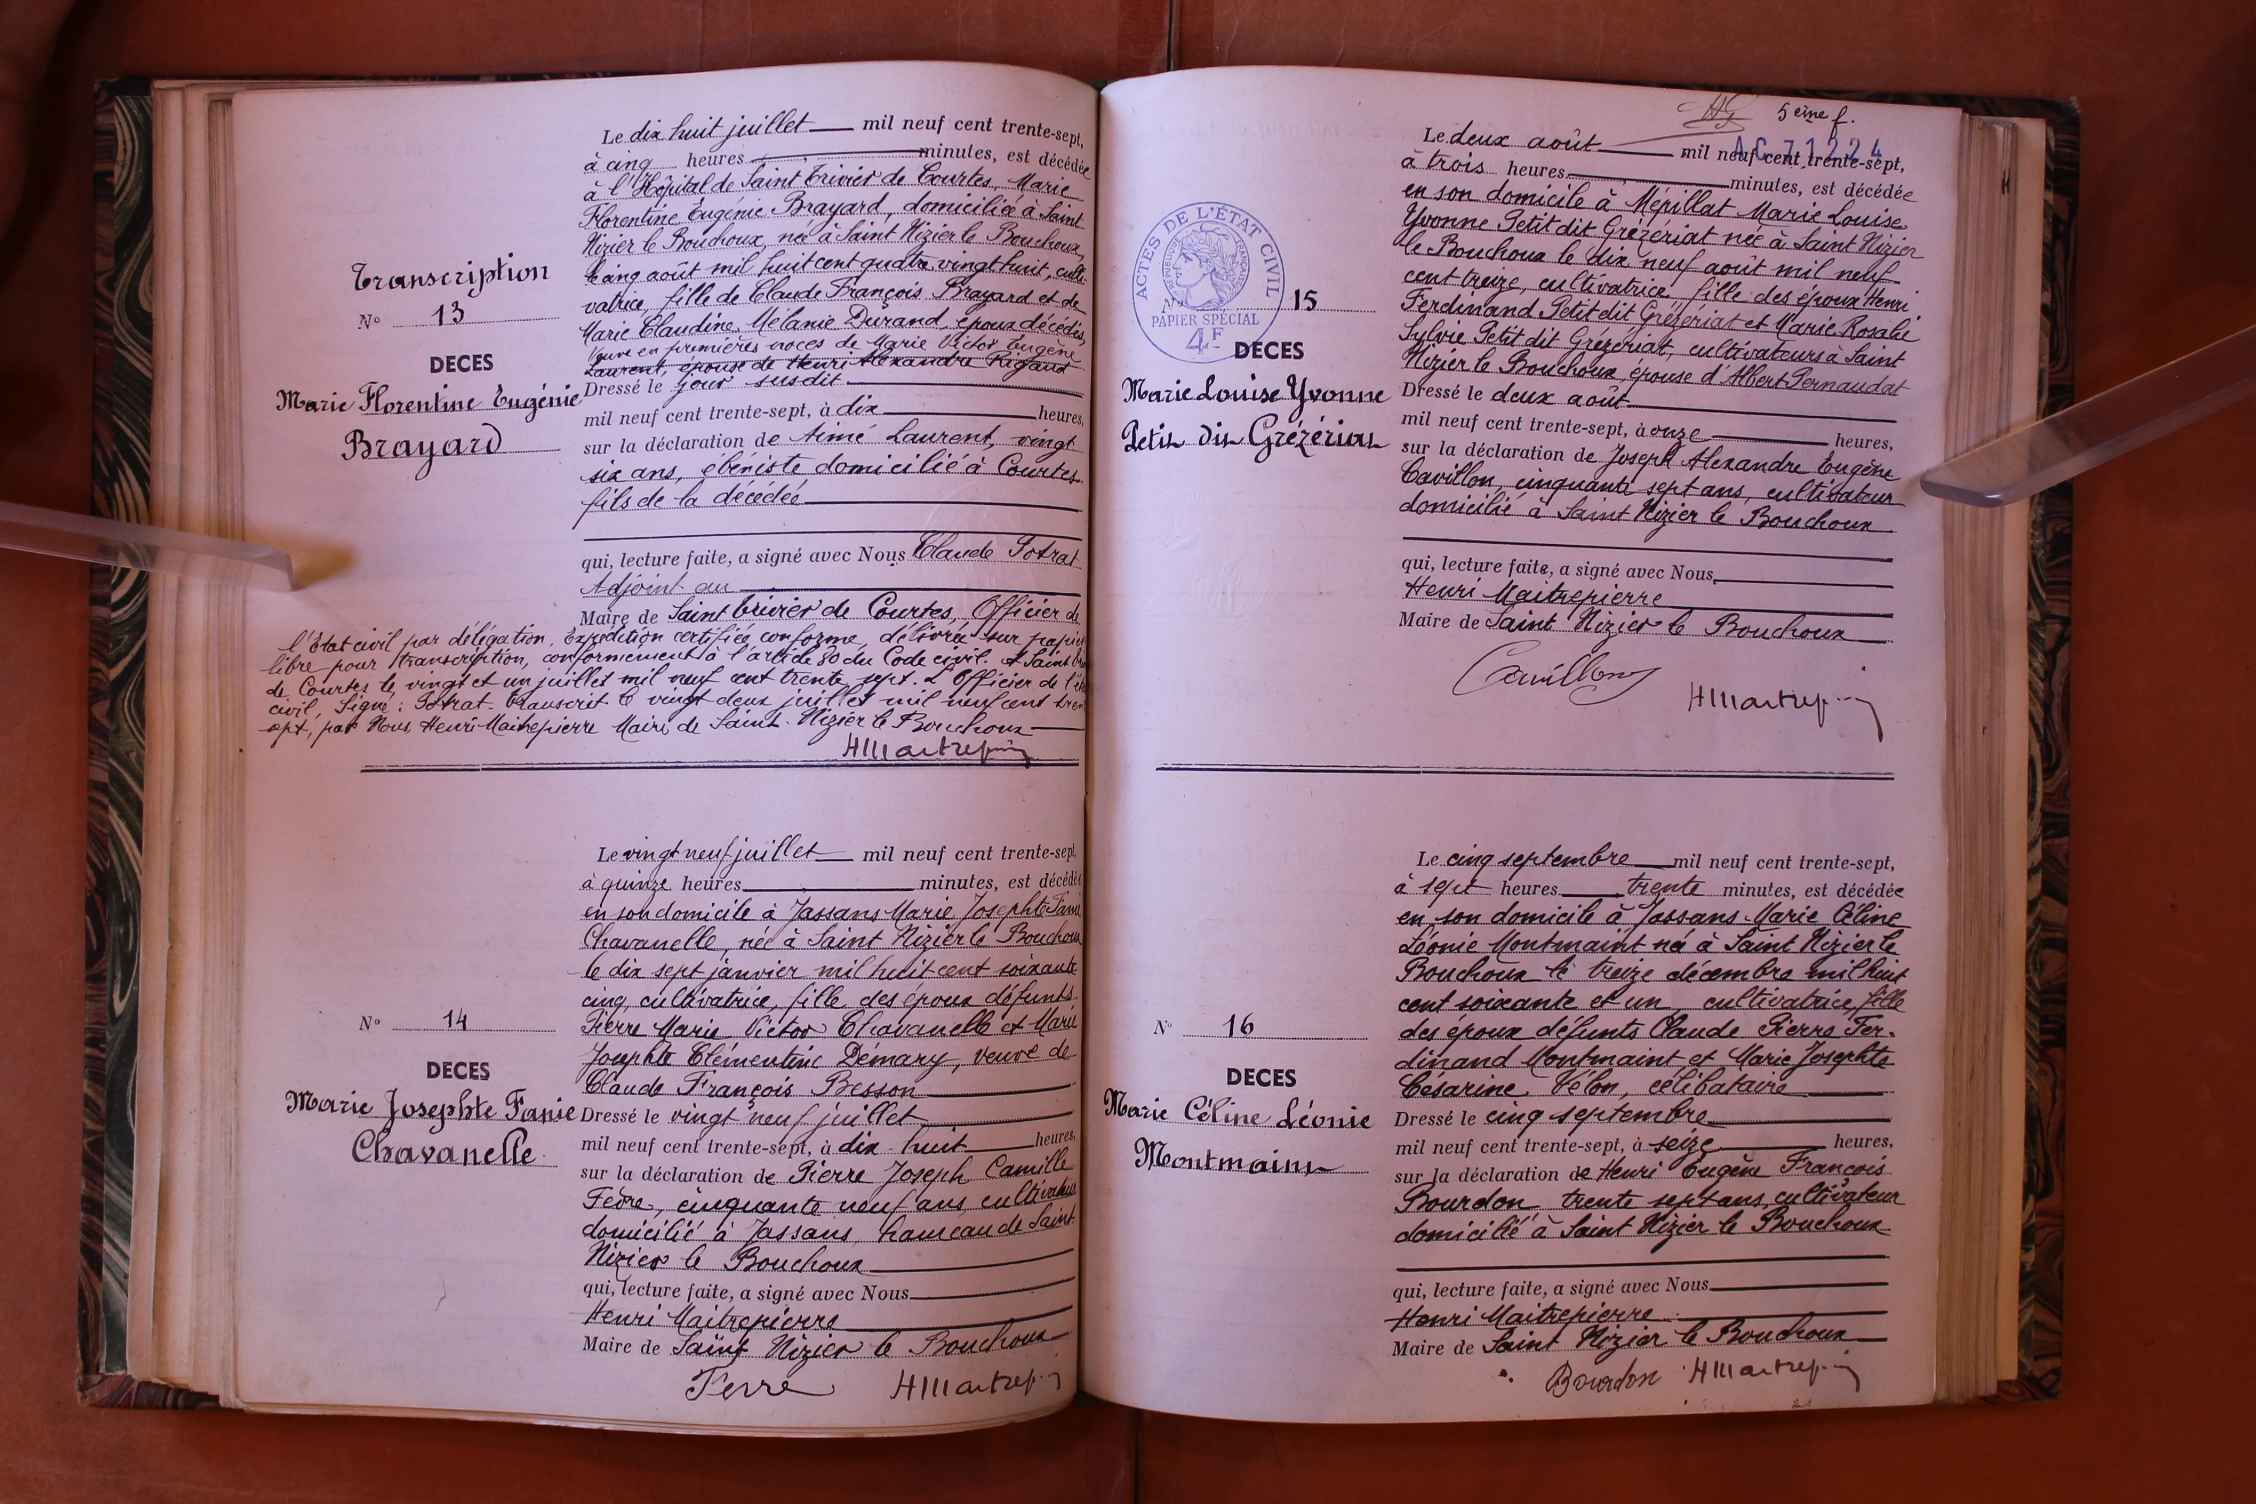 Transcription
N° 13
DECES
Marie Florentine Eugénie
Brayard
Le dix huit juillet mil neuf cent trente-sept,
à cinq heures minutes, est décédée
à l'Hôpital de Saint Trivier de Courtes, Marie
Florentine Eugénie Brayard, domiciliée à Saint
Nizier le Bouchoux, née à Saint Nizier le Bouchoux,
le cinq août mil huit cent quatre vingt huit, culti-
vatrice, fille de Claude François Brayard et de
Marie Claudine Mélanie Durand, époux décédés,
Veuve en premières noces de Marie Victor Eugène
Laurent, épouse de Henri Alexandre Rigaud
Dressé le jour susdit
mil neuf cent trente-sept, à dix heures,
sur la déclaration de Aimé Laurent, vingt
six ans, ébéniste domicilié à Courtes
fils de la décédée
qui, lecture faite, a signé avec Nous Claude Potrat
Adjoint au
Maire de Saint Trivier de Courtes, Officier de
l'état civil par délégation. Expédition certifiée conforme, délivrée sur papier
libre pour transcription, conformément à l'article 80 du Code civil. A Saint
de Courtes le vingt et un juillet mil neuf cent trente sept. L'Officier de l'
civil, Signé : Potrat. Transcrit le vingt deux juillet mil neuf cent
sept, par Nous Henri Maitrepierre Maire de Saint Nizier le Bouchoux
HMaitrepierre
N° 14
DECES
Marie Josephte Fanie
Chavanelle
Le vingt neuf juillet mil neuf cent trente-sept,
à quinze heures minutes, est décédée
en son domicile à Jassans Marie Josephte Fanie
Chavanelle, née à Saint Nizier le Bouchoux
le dix sept janvier mil huit cent soixante
cinq, cultivatrice, fille des époux défunts
Pierre Marie Victor Chavanelle et Marie
Josephte Clémentine Démary, veuve de
Claude François Besson
Dressé le vingt neuf juillet
mil neuf cent trente-sept, à dix huit heures,
sur la déclaration de Pierre Joseph Camille
Fèvre, cinquante neuf ans, cultivateur
domicilié à Jassans hameau de Saint
Nizier le Bouchoux
qui, lecture faite, a signé avec Nous
Henri Maitrepierre
Maire de Saint Nizier le Bouchoux
HMaitrepierre
5 ème f.
AC 71224
ACTES DE L'ÉTAT CIVIL
PAPIER SPÉCIAL
4F
N° 15
DECES
Marie Louise Yvonne
Petit dit Grézériat
Le deux août mil neuf cent trente-sept,
à trois heures minutes, est décédée
en son domicile à Mépillat Marie Louise
Yvonne Petit dit Grézériat née à Saint Nizier
le Bouchoux le dix neuf août mil neuf
cent treize, cultivatrice, fille des époux Henri
Ferdinand Petit dit Grézériat et Marie Rosalie
Sylvie Petit dit Grézériat, cultivateurs à Saint
Nizier le Bouchoux, épouse d'Albert Pernaudat
Dressé le deux août
mil neuf cent trente-sept, à onze heures,
sur la déclaration de Joseph Alexandre Eugène
Cavillon, cinquante sept ans, cultivateur
domicilié à Saint Nizier le Bouchoux
qui, lecture faite, a signé avec Nous
Henri Maitrepierre
Maire de Saint Nizier le Bouchoux
Cavillon
HMaitrepierre
N° 16
DECES
Marie Céline Léonie
Montmaint
Le cinq septembre mil neuf cent trente-sept,
à sept heures trente minutes, est décédée
en son domicile à Jassans Marie Céline
Léonie Montmaint née à Saint Nizier le
Bouchoux le treize décembre mil huit
cent soixante et un, cultivatrice, fille
des époux défunts Claude Pierre Fer-
dinand Montmaint et Marie Josephte
Césarine Vélon, célibataire
Dressé le cinq septembre
mil neuf cent trente-sept, à seize heures,
sur la déclaration de Henri Eugène François
Bourdon trente sept ans, cultivateur
domicilié à Saint Nizier le Bouchoux
qui, lecture faite, a signé avec Nous
Henri Maitrepierre
Maire de Saint Nizier le Bouchoux
Bourdon HMaitrepierre